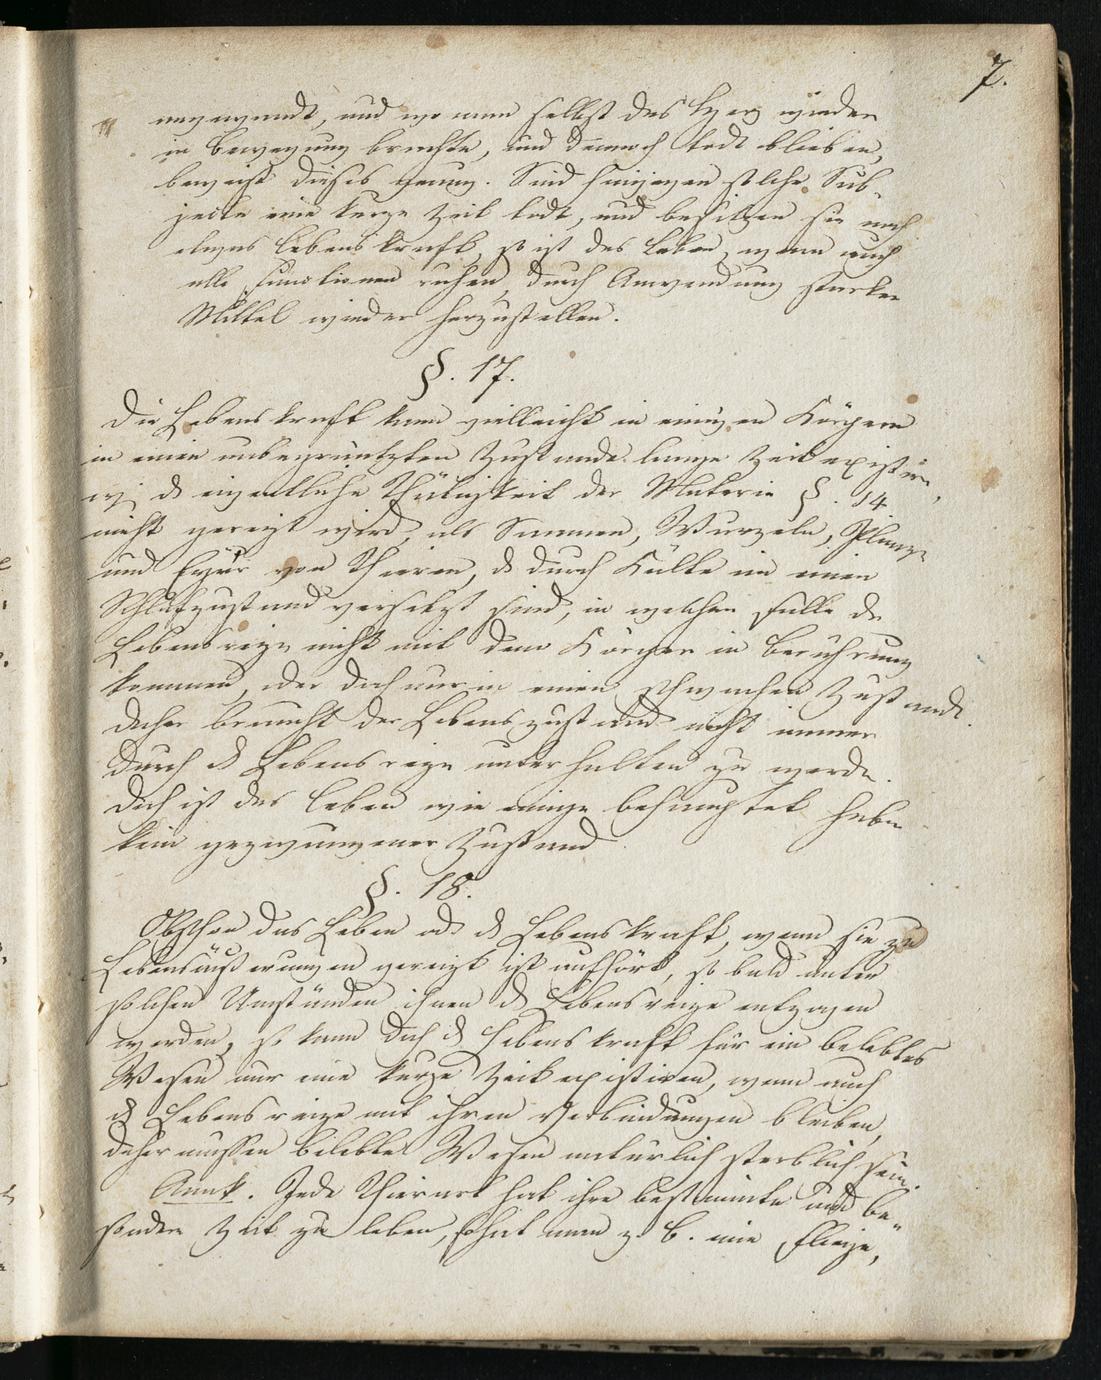 7.
angewandt, und wo man selbst das Herz wieder
in Bewegung brachte, und dennoch todt blieben,
beweist dieses genug. Sind hingegen solche Sub-
jecte eine kurze Zeit todt, und besitzen sie noch
etwas Lebenskraft, so ist das Leben, wenn auch
alle Functionen ruhen, durch Anwendung starker
Mittel wieder herzustellen.
§. 17.
Die Lebenskraft kann vielleicht in einigen Körpern
in einen unbegräntzten Zustande lange Zeit existiren,
wo d eigentliche Thätigkeit der Materie §. 14
nicht gereizt wird, als Saamen, Wurzeln, Pflanzen
und Eyer von Thieren, d durch Kälte in einen
Schlafzustand versetzt sind, in welchen Falle de
Lebensreize nicht mit dem Körper in Berührung
kommen, oder doch nur in einen schwachen Zustande.
Daher braucht der Lebenszustand nicht immer
durch d Lebensreize unterhalten zu werde.
Doch ist das Leben wie einige behauptet haben
kein gezwungener Zustand
§. 18.
Obschon das Leben od d Lebenskraft, wenn sie zu
Lebensäußerungen gereizt ist aufhört, so bald unter
solchen Umständen ihnen d Lebensreize entzogen
werden, so kann doch d Lebenskraft für ein belebtes
Wesen nur eine kurze Zeit existiren, wenn auch
d Lebensreize mit ihren Verbindungen bleiben,
daher müssen belebte Wesen natürlich sterblich sein.
Anmk. Jede Thierart hat ihre bestimmte und be-
sondere Zeit zu leben, so hat man z. B. eine Fliege,